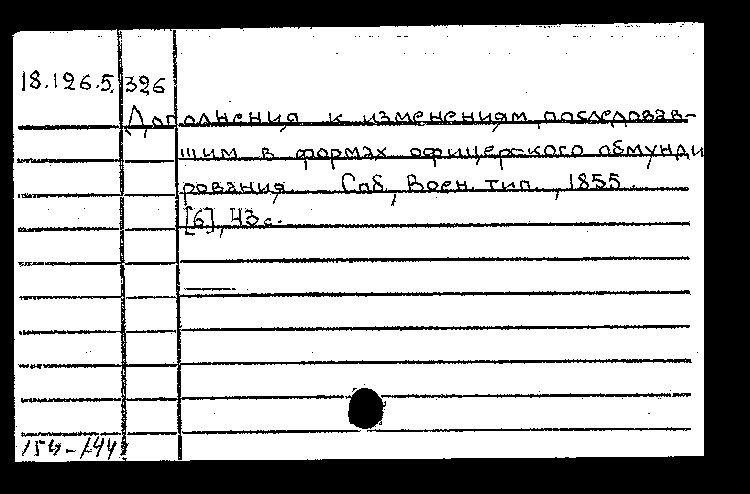 18.126.5. 326
Дополнения к изменениям, последовав-
шим в формах офицерского обмунди
рования. Спб, Воен. тип., 1855.
[6], 43 с.